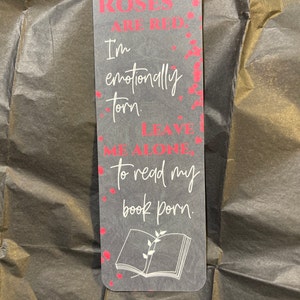 ROSES
ARE RED.
I'm
emotionally
torn.
LEAVE
ME ALONE,
to read my
book porn.